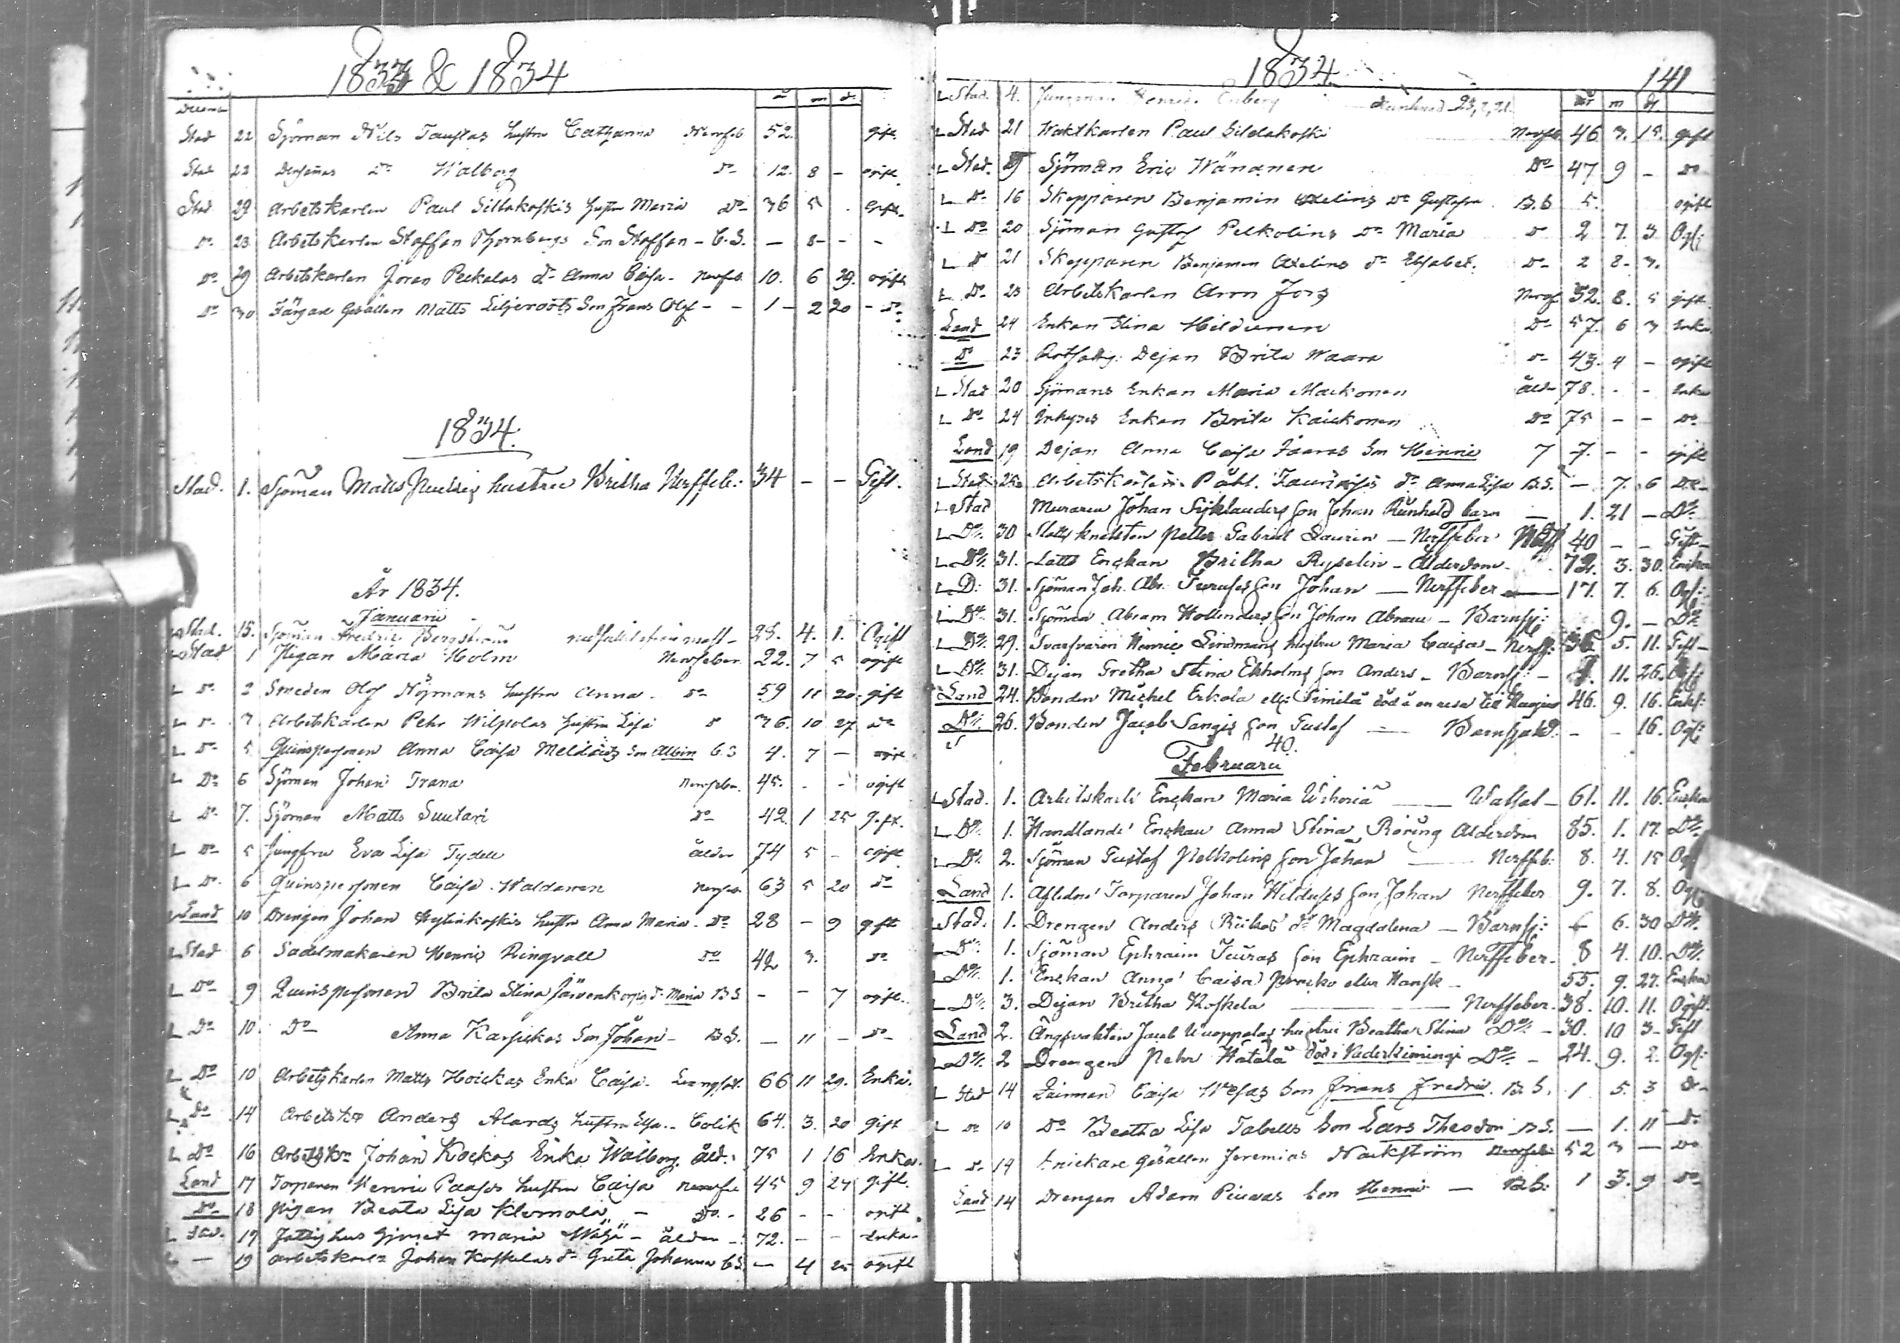 1833 & 1834
år m d.
Decem
Stad 22 Sjöman Nils hustru Catharina Nervfeb 52. gift
Stad 22 Densamas Dr Walborg Do 12. 8 – ogift
Stad 29 Arbetskarlen Paul Sillakoskis hustru Maria Do 36 5 . gift
Do 23 Arbetskarlen Staffan Thornbergs Son Staffan – B.S. – 8 – –
Do 29 Arbetskarlen Jöran Peckalas dr Anna Caisa – Nervfeb. 10. 6 29. ogift
Do 30 Färgare Gesällen Matts Liljeroots Son Frans Olof – – 1 – 2 20 – Do
1834.
Stad. 1. Sjöman Matts hustru Britha Nerffeb: 34 – – Gift.
År 1834.
Januarii
Stad. 15. Sjöman Fredric Bergström 28. 4. 1. Ogift
Stad 1 Pigan Maria Holm Nervfeber 22. 7 5 ogift
L Do 2 Smeden Olof Höjmans hustru Anna Do 59 11 20. gift
L Do 3 Arbetskarlen Pehr Wilpolas hustru Lisa Do 36. 10 27 Do
L Do 5 Quinspersonen Anna Caisa Son Albin B.S 4. 7 – ogift
L Do 6 Sjöman Johan Trana Nervfeber. 45. - - ogift
L Do 7. Sjöman Matts Suutari Do 42. 1 25 gift.
L Do 5 Jungfru Eva Lisa Tydell ålder 74 5 – ogift
L Do 6 Quinspersonen Caisa Waldaren Nervfeb. 63 5 20 Do
Land 10 Drengen Johan hustru Anna Maria Do 28 – 9 gift
L Stad 6 Sadelmakaren Henric Ringvall Do 42 3. Do
L Do 9 Quinspersonen Brita Stina dr Maria B.S – – 7 ogift.
L Do 10 Do Anna Karpickas Son Johan – B.S. – 11 – Do
L Do 10 Arbetskarlen Matts Hoickas Enka Caisa. Lungsot. 66 11 29. Enka.
L Do 14 Arbetskn Anders Alards hustru Elsa – Colik 64. 3. 20 gift
L Do 16 Arbetskn Johan Kockos Enka Walborg. åld: 75 1 16 Enka.
Land 17 Torparen Henric Paasos hustru Caisa Nervfe 45 9 27 gift.
Do 18 Pigan Beata Lisa Klemola – Do – 26 – – ogift
L Stad. 17 Fattighus hjonet Maria – ålder – 72. – – Enka
L – 19 Arbetskarln Johan Koskelas dr Greta Johanna B.S. – 4 25 ogift
1834. 141
år m d
L Stad. 4. Jungman Henric Enberg 23, 7, 21.
L Stad 21 Waktkarlen Paul Sildakoski Nervfeb 46 3. 15. gift
L Stad. 5 Sjöman Eric Wänanen Do 47 9 – Do
L Do 16 Skepparen Benjamin Axelins Dr Gustafva B.S 5. ogift
L Do 20 Sjöman Gustaf Pelkolins Dr Maria Do 2 7. 3 Ogf:
L Do 21 Skepparen Benjamin Axelins dr Elisabet. Do 2 8. 3.
L Do 23 Arbetskarlen Aron Jors Nervf 52. 8. 5 gift
Land 24 Enkan Stina Hildunen Do 57. 6 3 Enka
Do 23 Rotfattig: Dejan Brita Waara Do 43. 4 – ogift
L Stad 20 Sjömans Enkan Maria Mackonen Åld 78. - - Enka
L Do 24 Inhyses Enkan Brita Kaickonen Do 75 – – Do
Land 19 Dejan Anna Caisa Son Henric 7 7. – – ogift
L Stad 25 Arbetskarlen Påhl dr Anna Lisa B.S. – 7. 6 Do
L Stad Muraren Johan Sijklanders son Johan Reinhold barn – 1. 21 – Do
L Do 30 Slottsknekten Petter Gabriel Laurin – Nerffeber 40 – – Gift
L Do 31. Lotts Enckan Britha Ryselin – Ålderdom – 72. 3. 30. Enckan
L D: 31. Sjöman Joh. Abr. son Johan – Nerffeber 17. 7. 6. Ogf:
L Do 31. Sjöman Abram Hollenders son Johan Abram – Barnsj: 9. – Do
L Do 29. Svarfvaren Henric Lindmans hustru Maria Caisa – Nerff: 36 5. 11. Gift –
L Do 31. Dejan Gretha Stina Ekholms son Anders – Barnsj: – 11. 26. Ogf:
Land 24. Bonden Michel Erkola elr Similä död å en resa till 46. 9. 16. Enkl:
Do 26. Bonden Jacob Sangis son Gustaf – Barnsjuka. – – 16. Ogf:
40.
Februarii
L Stad. 1. Arbetskarls Enckan Maria – Wattsot – 61. 11. 16. Enckan
L Do 1. Handlande Enckan Anna Stina Röring Alderdom 85. 1. 17. Do
L Do 2. Sjöman Gustaf Pelkolins son Johan – Nerffeb: 8. 4. 15 Ogf
Land 1. Aflidne Torparen Johan Hilduses son Johan Nerffeber 9. 7. 8. Ogf
L Stad. 1. Drengen Anders dr Magdalena – Barnsj: – 6. 30 Do
L Do 1. Sjöman Ephraim son Ephraim – Nerffeber – 8 4. 10. Do
L Do 1. Enckan Anna Caisa eller Hansk – 55. 9. 27. Enckan
L Do 3. Dejan Britha Koskela – Nerffeber. 38. 10. 11. Ogift.
Land 2. Ängsvakten Jacob hustru Beatha Stina Do – 30. 10 3 – Gift
L Do 2 Drengen Pehr Hatala död i Nederkiiminge Do – 24. 9. 2. Ogf:
L Stad 14 Son Frans Fredric. B.S. 1 5. 3 Do
L Do 10 Do Beatha Lisa Tabells Son Lars Theodor B.S. – 1. 11 – Do
L Do 14 Snickare Gesällen Jeremias Nackström Nervfeb 52 3 – Do
Land 14 Drengen Adam Son Henric – B.S. 1 3. 9 Do